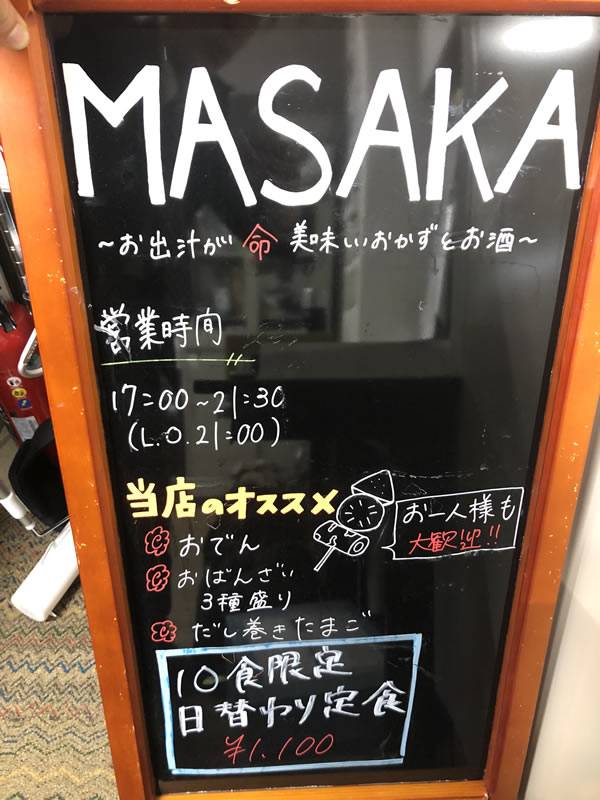 MASAKA
～お出汁が命 美味しいおかずとお酒～
営業時間
17:00～21:30
(L.O.21:00)
当店のオススメ
おでん
おばんざい
3種盛り
だし巻きたまご
お一人様も
大歓迎!!
10食限定
日替わり定食
¥1,100